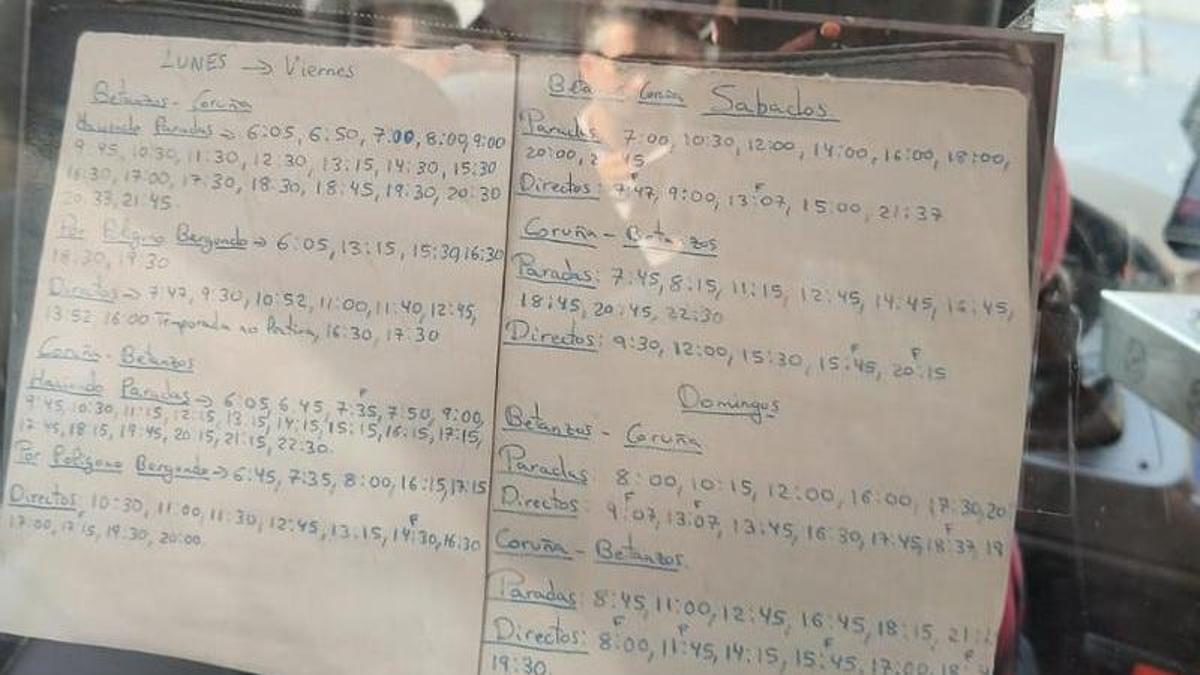 LUNES → Viernes
Betanzos - Coruña
Haciendo Paradas → 6:05, 6:50, 7:00, 8:00, 9:00
9:45, 10:30, 11:30, 12:30, 13:15, 14:30, 15:30
16:30, 17:00, 17:30, 18:30, 18:45, 19:30, 20:30
20:33, 21:45.
Por Poligono Bergondo → 6:05, 13:15, 15:30, 16:30
18:30, 19:30
Directos → 7:47, 9:30, 10:52, 11:00, 11:40, 12:45,
13:52 16:00 Temporada no lectiva, 16:30, 17:30
Coruña - Betanzos
Haciendo Paradas → 6:05, 6:45, 7:35, F 7:50, 9:00,
9:45, 10:30, 11:15, 12:15, 13:15, 14:15, 15:15, 16:15, 17:15,
17:45, 18:15, 19:45, 20:15, 21:15, 22:30.
Por Poligono Bergondo → 6:45, 7:35, 8:00, 16:15, 17:15
Directos: 10:30, 11:00, 11:30, 12:45, 13:15, 14:30, F 16:30
17:00, 17:15, 19:30, 20:00.
Coruña Sabados
Paradas 7:00, 10:30, 12:00, 14:00, 16:00, 18:00,
20:00,
Directos: 7:47, F 9:00, 13:07, F 15:00, 21:37
Coruña - Betanzos
Paradas: 7:45, 8:15, 11:15, 12:45, 14:45, 16:45,
18:45, 20:45, 22:30
Directos: 9:30, 12:00, 15:30, 15:45, F 20:15 F
Domingos
Betanzos - Coruña
Paradas 8:00, 10:15, 12:00, 16:00, 17:30, 20
Directos: 9:07, F 13:07, F 13:45, 16:30, 17:45, 18:37, F 19
Coruña - Betanzos.
Paradas: 8:45, 11:00, 12:45, 16:45, 18:15,
Directos: 8:00, F 11:45, F 14:15, 15:45, F 17:00,
19:30.